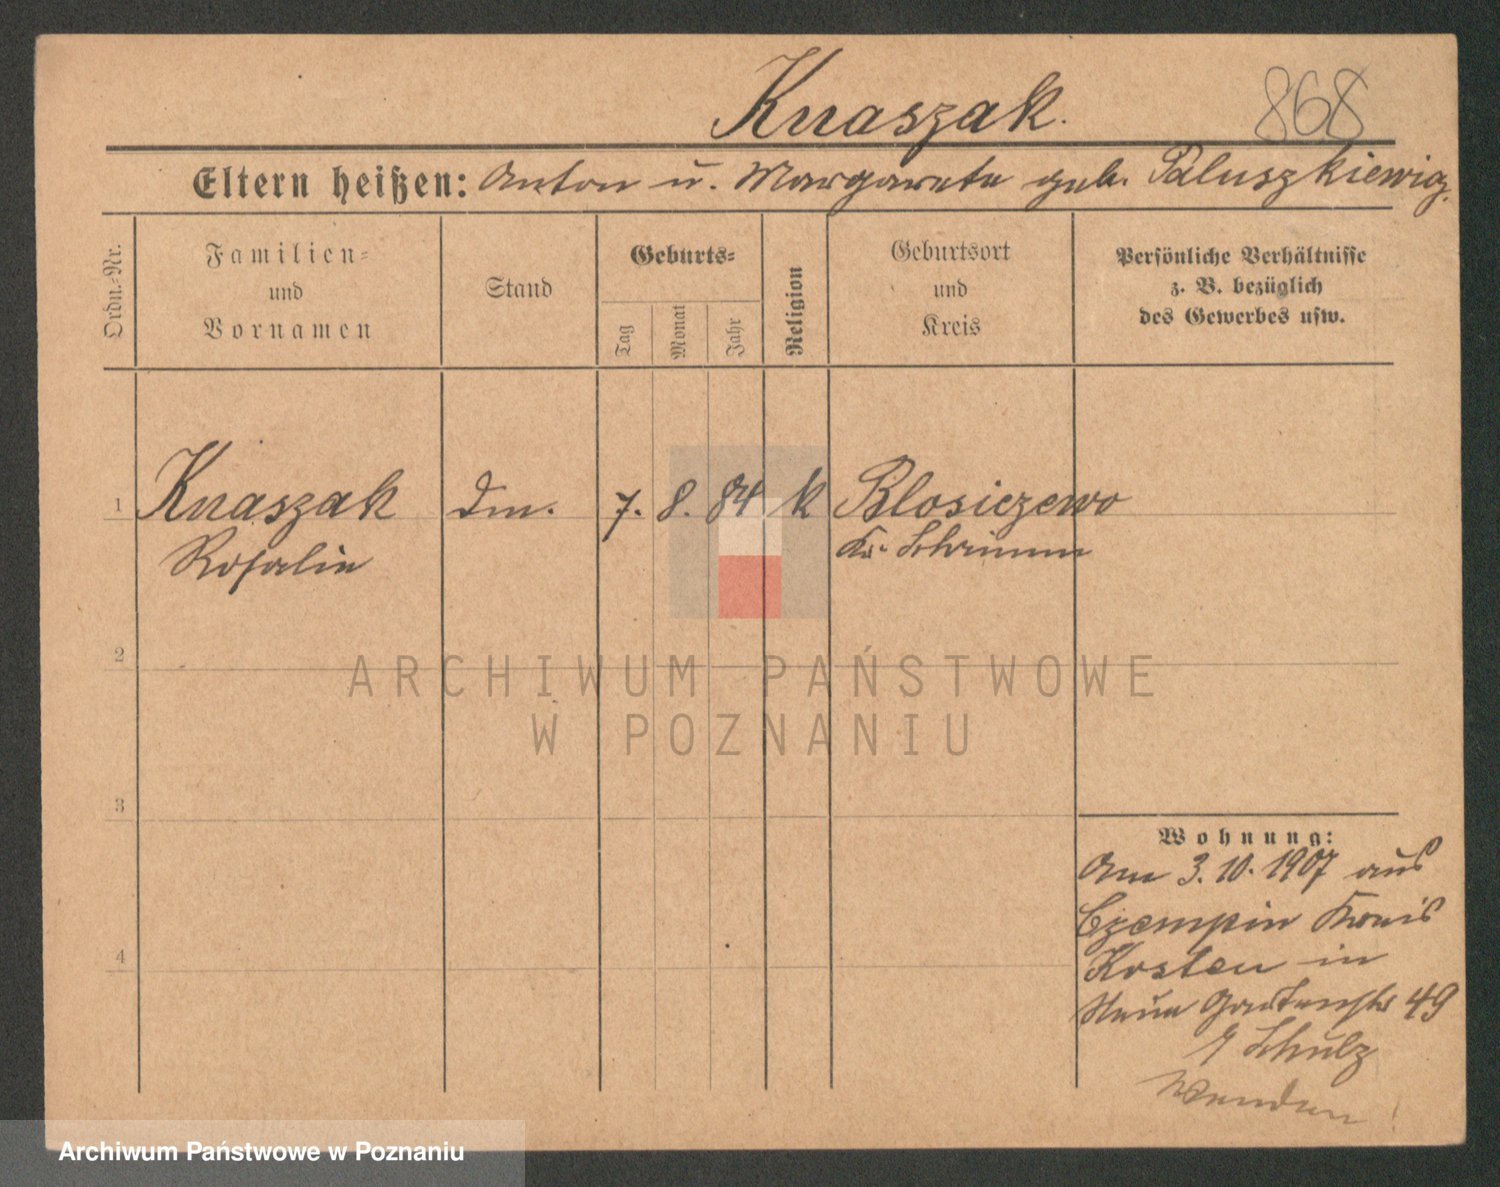 Knaszak.
868
Eltern heißen: Anton u. Margarete geb. Paluszkiewicz.
Ordn.-Nr.
Familien-
und
Vornamen
Stand
Geburts-
Tag
Monat
Jahr
Religion
Geburtsort
und
Kreis
Persönliche Verhältnisse
z. B. bezüglich
des Gewerbes usw.
1 Knaszak Dm. 7. 8. 84 k Blosiczewo
Rosalie Kr. Schrimm
2
3
4
Wohnung:
Am 3.10.1907 aus
Czempin Kreis
Kosten in
Neue Gartenstr 49
b Schulz
Wenden!
ARCHIWUM PAŃSTWOWE
W POZNANIU
Archiwum Państwowe w Poznaniu